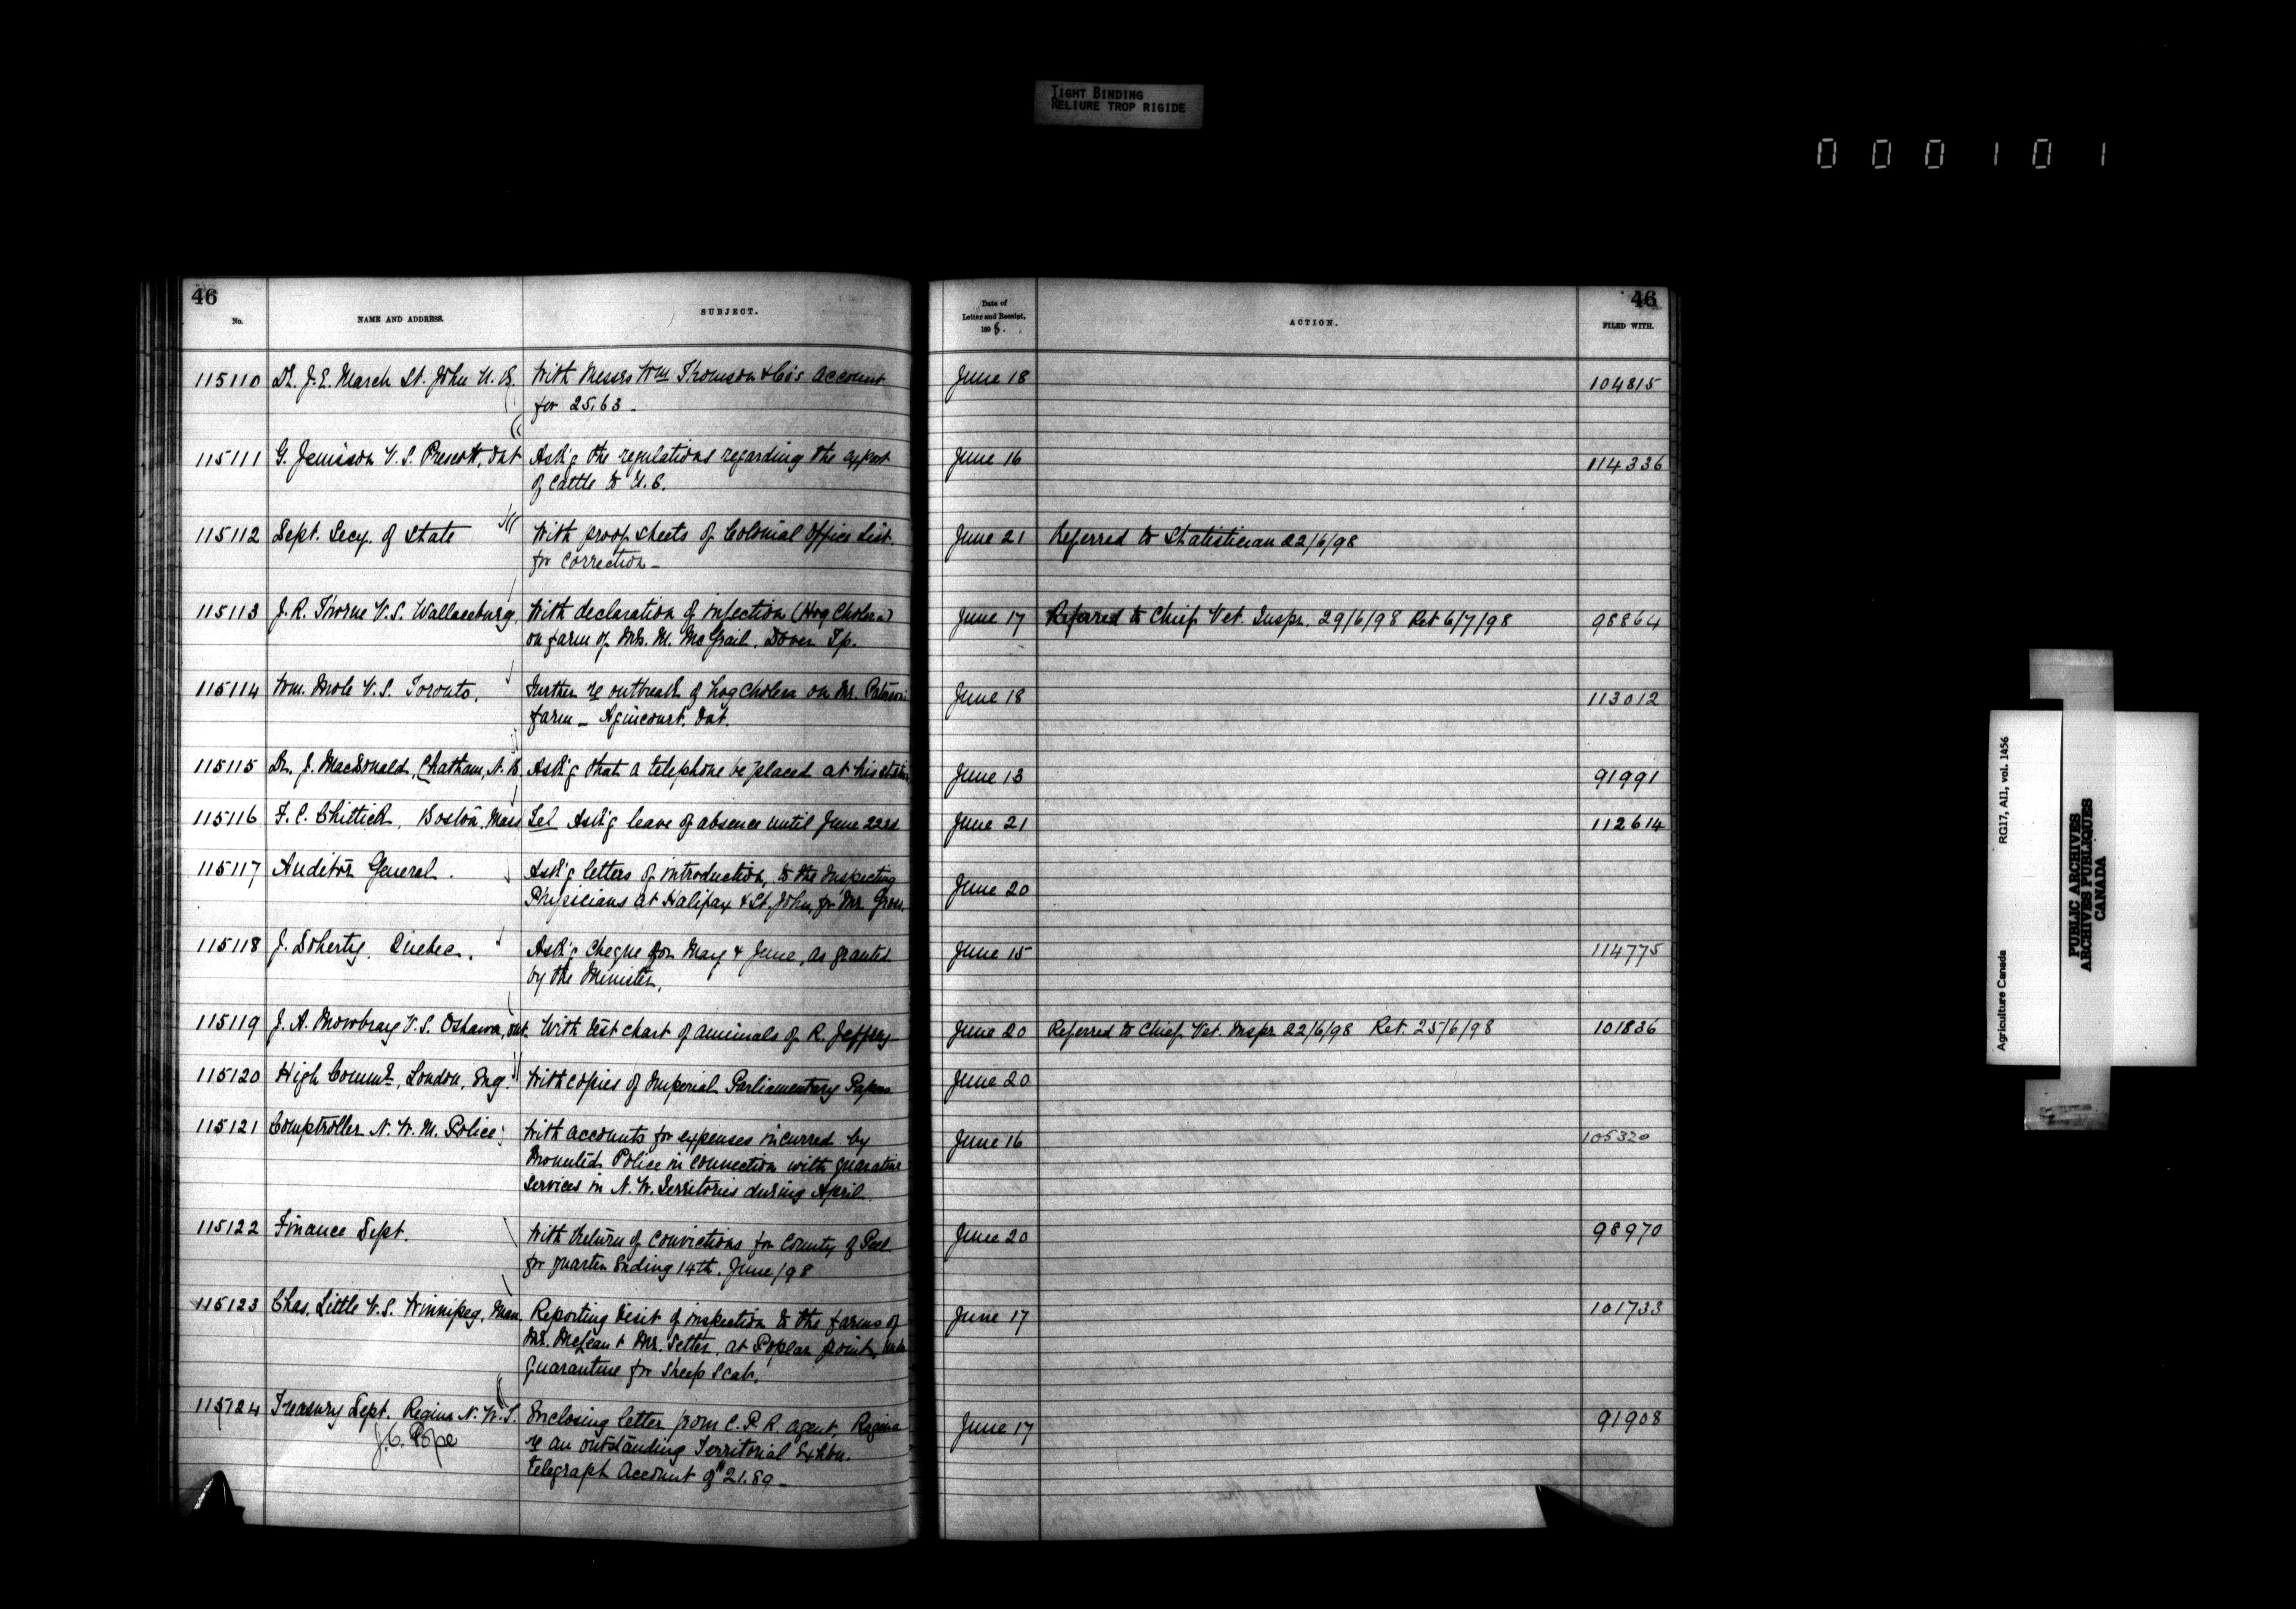 TIGHT BINDING
RELIURE TROP RIGIDE
000101
46
No.
NAME AND ADDRESS.
SUBJECT.
Date of
Letter and Receipt,
1898.
ACTION.
46
FILED WITH.
115110 Dr. J. E. March St. John N. B. With Messrs Wm Thomson & Co's Account June 18 104815
for 25.63 -
115111 G. Jemison V. S. Prescott, Ont Ask'g the regulations regarding the export June 16 114336
of Cattle to U. S.
115112 Dept. Secy. of State With proof sheets of Colonial Office List. June 21 Referred to Statistician 22/6/98
for correction -
115113 J. R. Thorne V. S. Wallaceburg, With declaration of infection (Hog Cholera) June 17 Referred to Chief Vet. Inspr. 29/6/98 Ret 6/7/98 98864
on farm of Mrs. M. McGrail, Dover Tp.
115114 Wm. Mole V. S. Toronto. Further re outbreak of hog cholera on Mr. June 18 113012
farm - Agincourt. Ont.
115115 Dr. J. MacDonald, Chatham, N. B. Ask'g that a telephone be placed at his station June 13 91991
115116 F. C. Chittick, Boston, Mass Tel Ask'g leave of absence until June 22nd June 21 112614
115117 Auditor General. Ask'g letters of introduction, to the Inspecting June 20
Physicians at Halifax & St. John, for Mr.
115118 J. Doherty. Quebec. Ask'g Cheque for May & June, as granted June 15 114775
by the Minister.
115119 J. A. Mowbray V. S. Oshawa, Ont. With test chart of animals of R. Jeffrey June 20 Referred to Chief Vet. Inspr 22/6/98 Ret. 25/6/98 101836
115120 High Commr, London, Eng. With copies of Imperial Parliamentary Papers June 20
115121 Comptroller N. W. M. Police With accounts for expenses incurred by June 16 105320
Mounted Police in connection with quarantine
services in N. W. Territories during April.
115122 Finance Dept. With Return of Convictions for County of Peel June 20 98970
for quarter ending 14th. June/98
115123 Chas. Little V. S. Winnipeg, Man. Reporting visit of inspection to the farms of June 17 101733
Mr. McLean & Mr. Setter, at Poplar Point, under
quarantine for Sheep Scab.
115124 Treasury Dept. Regina N. W. T. Enclosing letter from C. P. R. Agent, Regina June 17 91908
J. C. Pope re an outstanding Territorial Exhbn.
telegraph Account of $21.89 -
Agriculture Canada RG17, AII, vol. 1456
PUBLIC ARCHIVES
ARCHIVES PUBLIQUES
CANADA